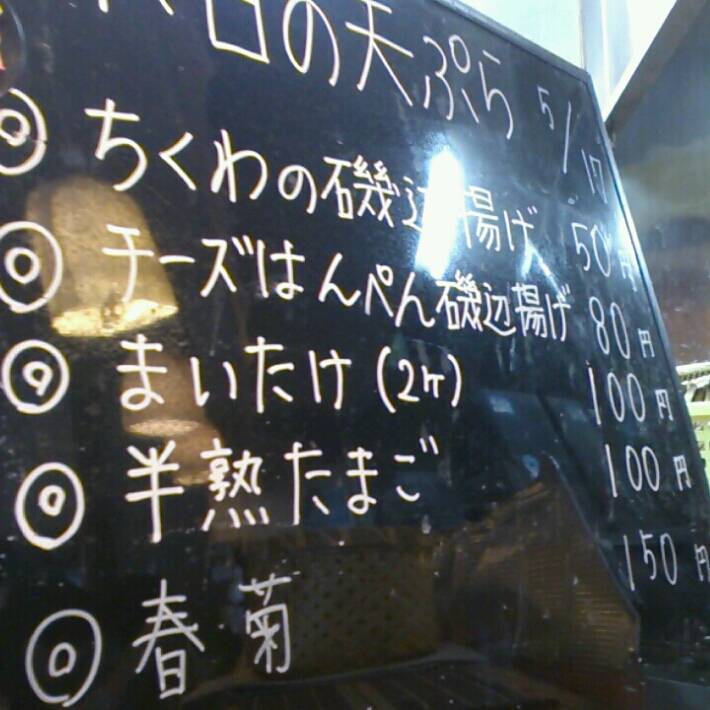 日の天ぷら 5/17
◎ ちくわの磯辺揚げ 50円
◎ チーズはんぺん磯辺揚げ 80円
◎ まいたけ(2ヶ) 100円
◎ 半熟たまご 100円
◎ 春菊 150円